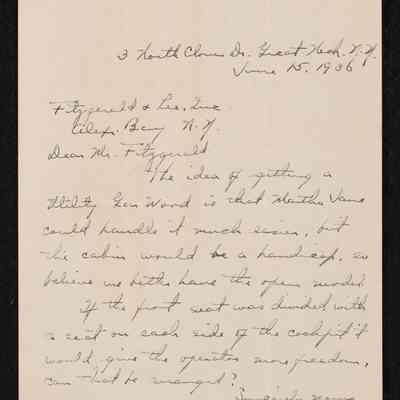 3 North Clover Dr. Great Neck. N.Y.
June 15, 1936
Fitzgerald & Lee, Inc
Alex. Bay N.Y.
Dear Mr. Fitzgerald
The idea of getting a
Utility Gar Wood is that Martha Vane
could handle it much easier, but
the cabin would be a handicap, so
believe we betha have the open model
If the front seat was divided with
a seat on each side of the cockpit it
would give the operator more freedom,
can that be arranged?
Sincerely yours